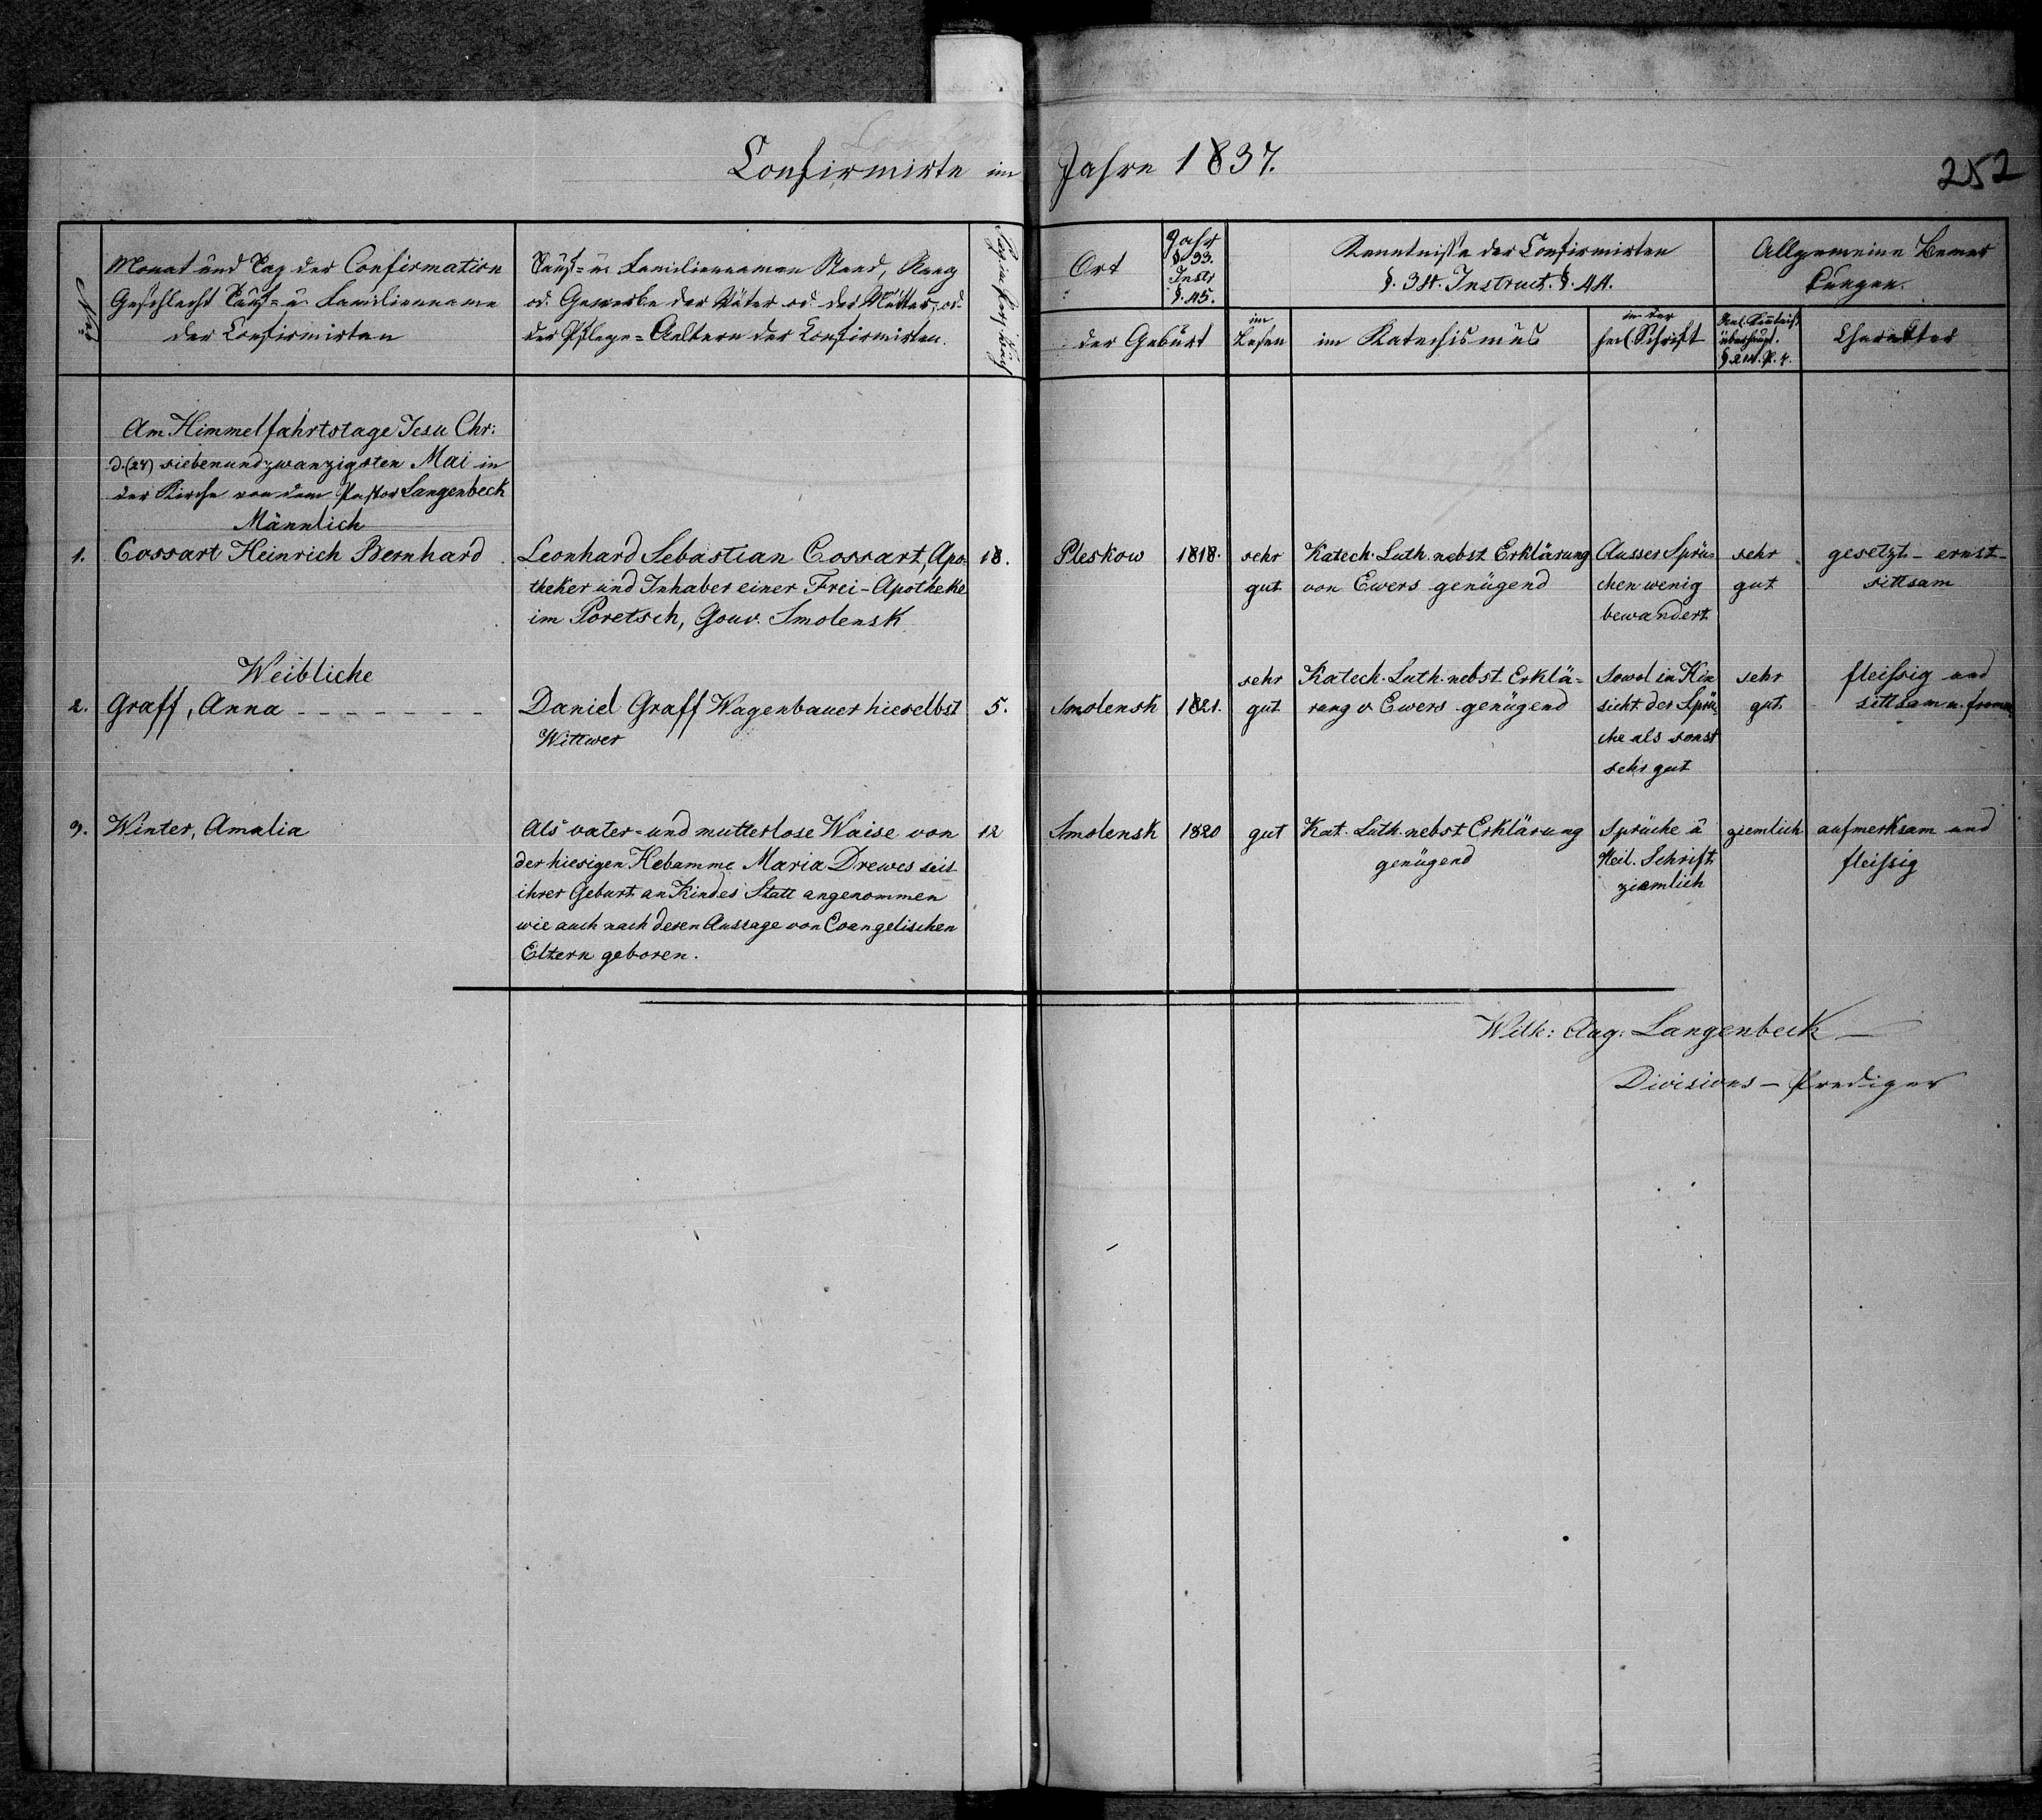 Confirmirte im Jahre 1837.
252
Nro
Monat und Tag der Confirmation
Geschlecht Tauf- u. Familienname
der Confirmirten
Tauf- u. Familiennamen Stand, Rang
od. Gewerbe der Väter od. der Mütter, od.
der Pflege-Aeltern der Confirmirten.
Ort
Jahr
§ 33.
Instr
§. 45.
der Geburt
Kenntnisse der Confirmirten
§. 34. Instruct. §. 44.
im
Lesen
im Katechismus
in der
heil. Schrift
Allgemeine Bemer
kungen.
überhaupt.
Charakter
Am Himmelfahrtstage Jesu Chr:
d. (27) siebenundzwanzigsten Mai in
der Kirche von dem Pastor Langenbeck
Männlich
1. Cossart Heinrich Bernhard
Leonhard Sebastian Cossart, Apo-
theker und Inhaber einer Frei-Apotheke
im Poretsch, Gouv. Smolensk
18.
Pleskow
1818.
sehr
gut
Katech. Luth. nebst Erklärung
von Ewers genügend
Ausser Sprü-
chen wenig
bewandert
sehr
gut
gesetzt - ernst -
sittsam
Weibliche
2. Graff, Anna - - - - - - -
Daniel Graff Wagenbauer hieselbst
Wittwer
5.
Smolensk
1821.
sehr
gut
Katech. Luth. nebst Erklä-
rung v Ewers genügend
Sowol in Hin
sicht der Sprü-
che als sonst
sehr gut
sehr
gut
fleissig und
sittsam u. fromm
3. Winter, Amalia
Als vater- und mutterlose Waise von
der hiesigen Hebamme Maria Drewes seit
ihrer Geburt an Kindes Statt angenommen
wie auch nach deren Aussage von Evangelischen
Eltern geboren.
12
Smolensk
1820
gut
Kat. Luth. nebst Erklärung
genügend
Sprüche u
Heil. Schrift
ziemlich
ziemlich
aufmerksam und
fleissig
Wilh: Aug: Langenbeck
Divisions-Prediger